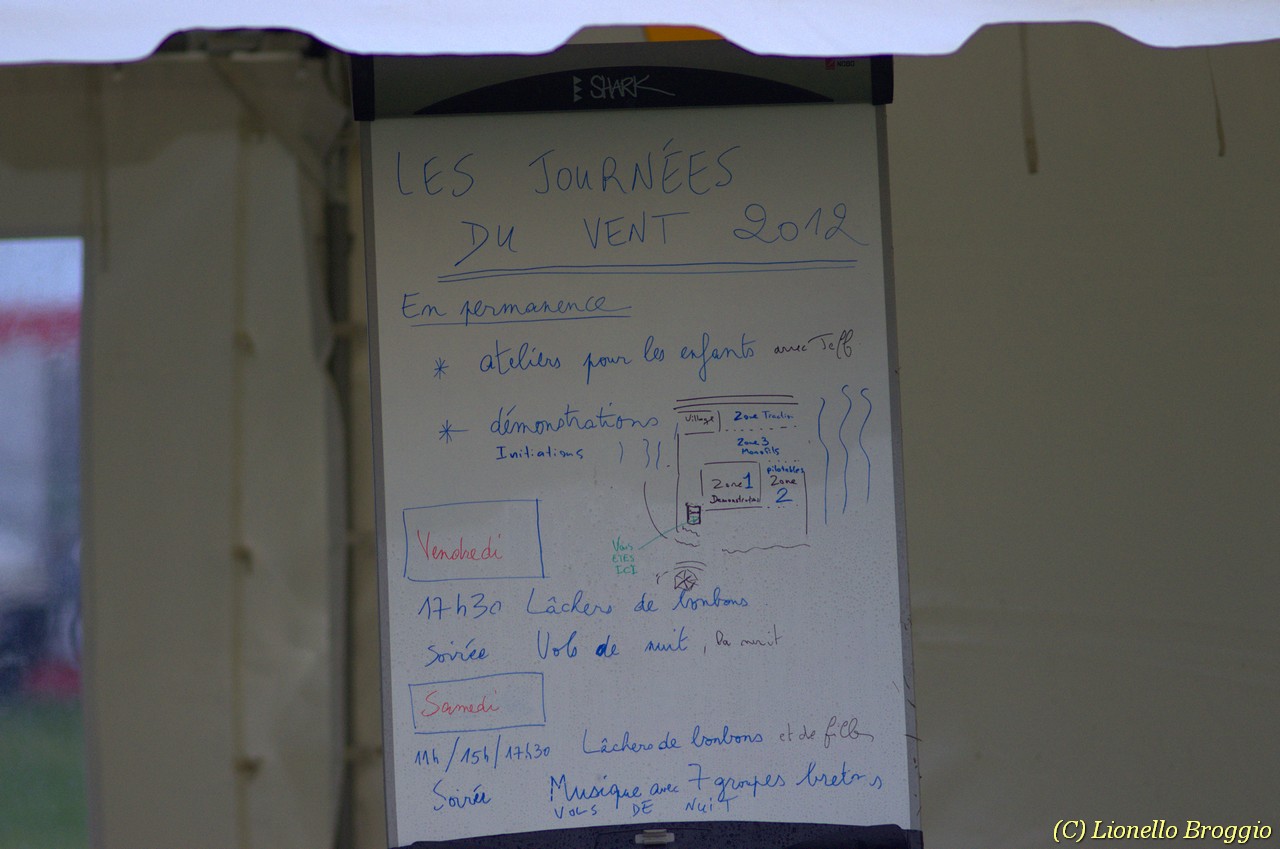 SHARK
LES JOURNÉES
DU VENT 2012
En permanence
* ateliers pour les enfants avec Jeff
* démonstrations
Initiations
Village
Zone Traction
Zone 3
Monofils
Zone 1
Demonstration
pilotables
Zone
2
Vous
ETES
ICI
Vendredi
17h30 Lâchers de bonbons
Soirée Vols de nuit, Da nuit
Samedi
11h/15h/17h30 Lâchers de bonbons et de filles
Soirée Musique avec 7 groupes bretons
VOLS DE NUIT
(C) Lionello Broggio